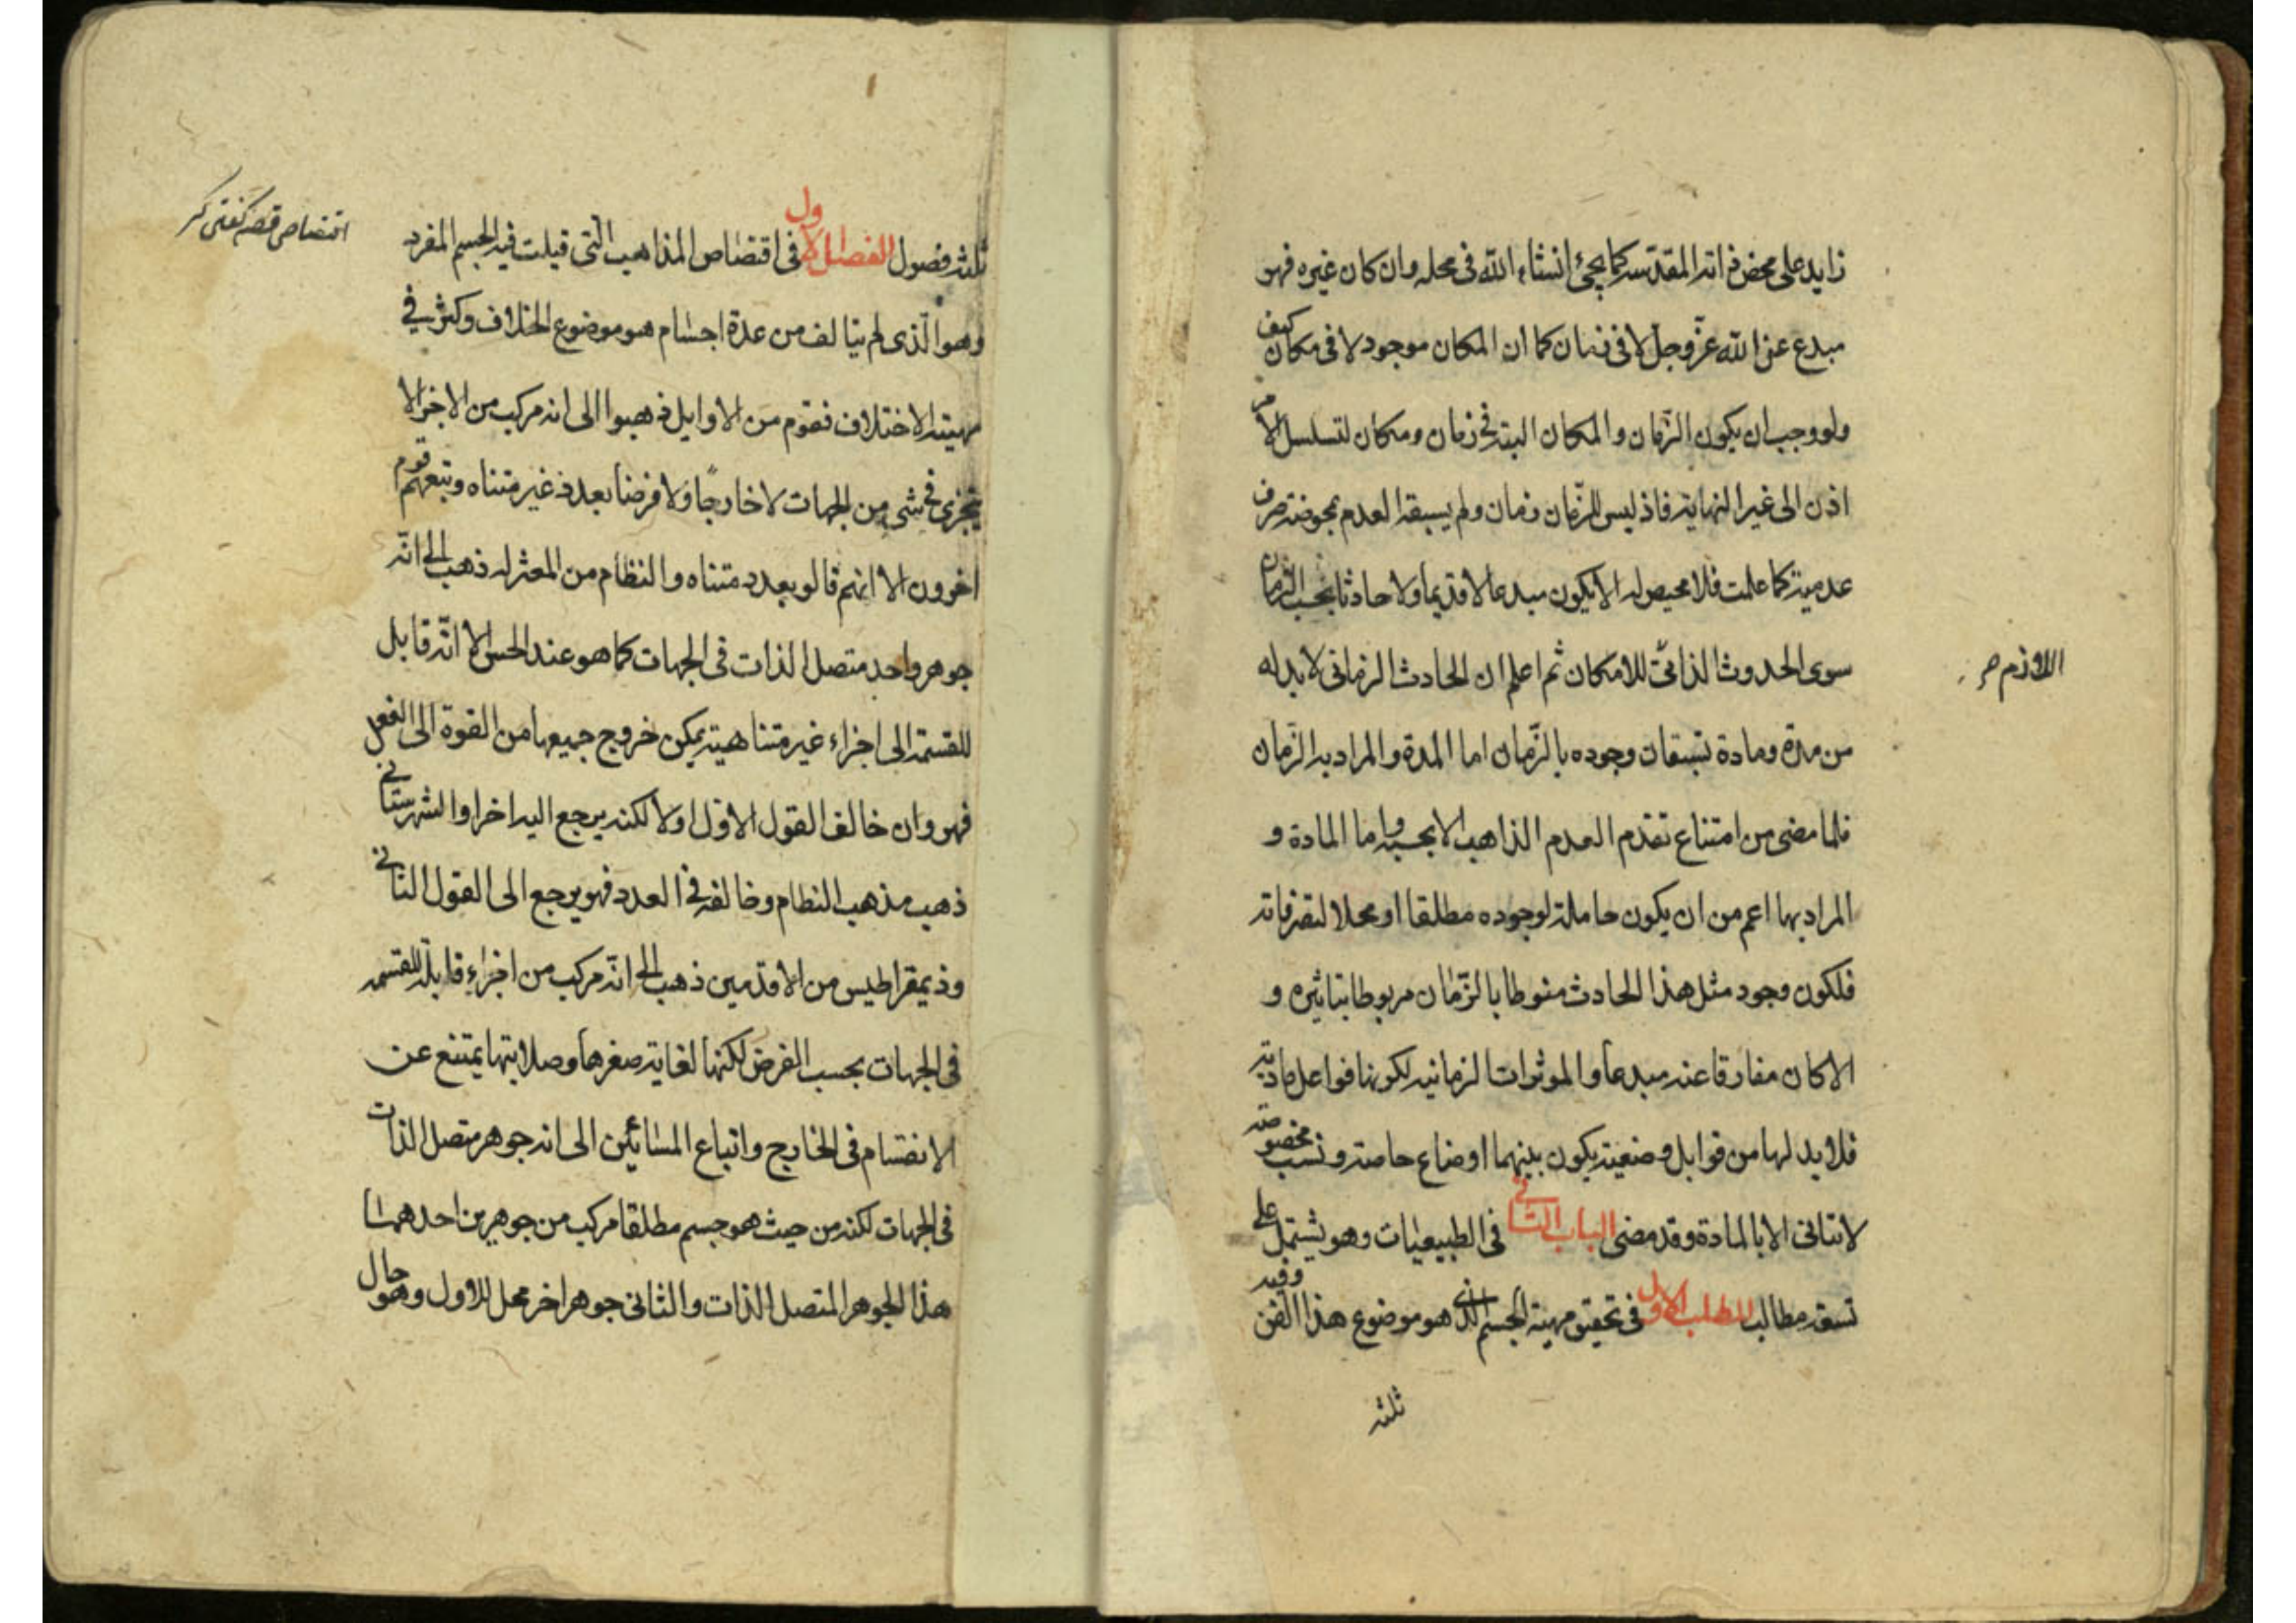 زايد على محض ذاته المقدسه كما يجئ انشاء الله فى محله وان كان غيره فهو
مبدع عن الله عز وجل لا فى زمان كما ان المكان موجود لا فى مكان كيف
ولو وجب ان يكون الزمان والمكان البته فى زمان ومكان لتسلسل الامر
اذن الى غير النهايه فاذ ليس للزمان زمان ولم يسبقه العدم بحوضته صرف
عدميته كما علمت فلا محيص له الا يكون مبدعا لا قديما ولا حادثا بحسب الزمان
سوى الحدوث الذاتى للامكان ثم اعلم ان الحادث الزمانى لا بد له
من مدة ومادة تسبقان وجوده بالزمان اما المدة والمراد به الزمان
فلما مضى من امتناع تقدم العدم الذاهب الا بحسبه واما المادة و
المراد بها اعم من ان يكون حاملة لوجوده مطلقا او محلا لتصرفاته
فلكون وجود مثل هذا الحادث منوطا بالزمان مربوطا بتاثيره و
الا كان مفارقا عنه مبدعا والموثرات الزمانيه لكونها فواعل ماديته
فلا بد لها من قوابل وضعيته يكون بينهما اوضاع خاصته ونسب مخصوصته
لا تتاتى الا بالمادة وقد مضى الباب الثانى فى الطبيعيات وهو يشتمل على
تسعه مطالب المطلب الاول فى تحقيق مهية الجسم الذى هو موضوع هذا الفن وفيه
ثلثه
اللازم صر
ثلثه فصول الفصل الاول فى اقتضاص المذاهب التى قيلت فيه الجسم المفرد
وهو الذى لم يتالف من عدة اجسام هو موضوع الخلاف وكثر في
مهيته الاختلاف فقوم من الاوايل ذهبوا الى انه مركب من الاجزا لا
يتجزى فى شى من الجهات لا خارجا ولا فرضا بعدد غير متناه وتبعهم قوم
اخرون الا انهم قالو بعدد متناه والنظام من المعتزله ذهب الى انه
جوهر واحد متصل الذات فى الجهات كما هو عند الحس الا انه قابل
للقسمة الى اجزاء غير متناهيته يمكن خروج جميعها من القوة الى الفعل
فهو وان خالف القول الاول اولا لكنه يرجع اليه اخرا والشهرستانى
ذهب مذهب النظام وخالفه فى العدد فهو يرجع الى القول الثانى
وذيمقراطيس من الاقدمين ذهب الى انه مركب من اجزاء قابلة للقسمه
فى الجهات بحسب الفرض لكنها لغايته صغرها وصلابتها يمتنع عن
الانقسام فى الخارج واتباع المشائين الى انه جوهر متصل الذات
فى الجهات لكنه من حيث هو جسم مطلقا مركب من جوهرين احدهما
هذا الجوهر المتصل الذات والثانى جوهر اخر محل للاول وهو حال
اقتضاص قصه كفتى كر